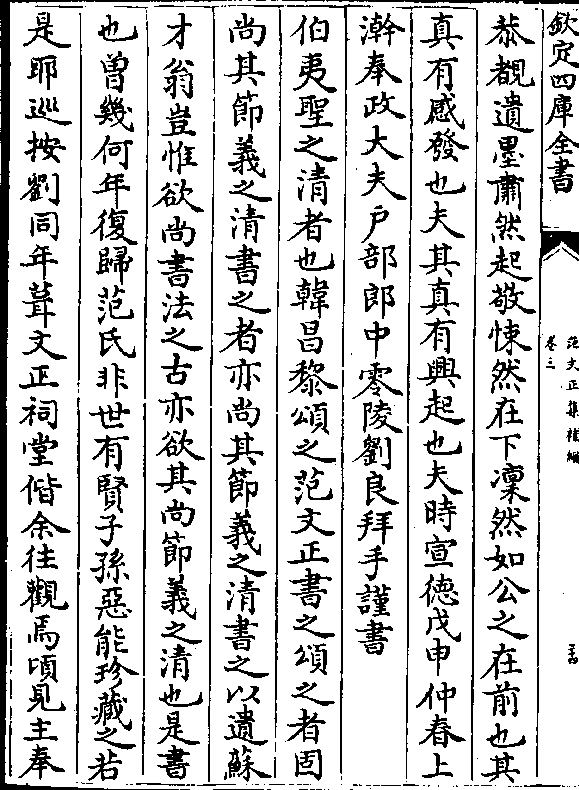 欽定四庫全書
范文正集補編
卷三
恭覩遺墨肅然起敬悚然在下凜然如公之在前也其
真有感發也夫其真有興起也夫時宣德戊申仲春上
澣奉政大夫戶部郎中零陵劉良拜手謹書
伯夷聖之清者也韓昌黎頌之范文正書之頌之者固
尚其節義之清書之者亦尚其節義之清書之以遺蘇
才翁豈惟欲尚書法之古亦欲其尚節義之清也是書
也曾幾何年復歸范氏非世有賢子孫惡能珍藏之若
是耶巡按劉同年葺文正祠堂偕余往觀焉頃見主奉